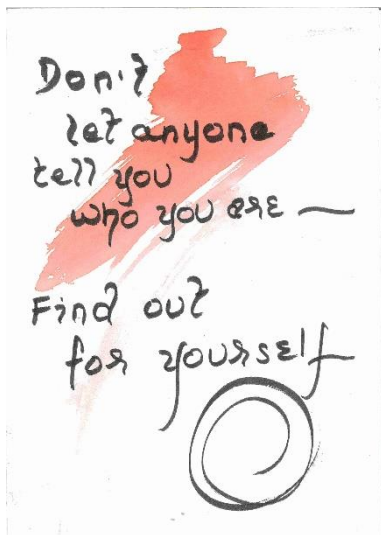 Don't
let anyone
tell you
who you are —
Find out
for yourself